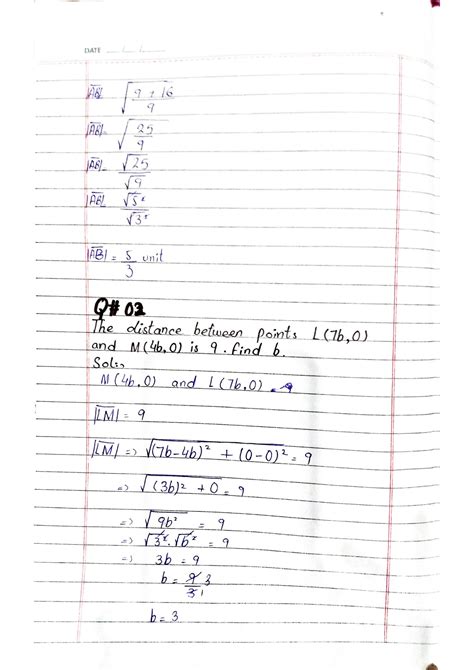 DATE
|AB| √(9+16/9)
|AB|= √(25/9)
|AB|- √25/√9
|AB|- √5²/√3²
|AB| = 5/3 unit
Q# 02
The distance between points L(7b,0)
and M(4b,0) is 9. find b.
Sol:,
M(4b,0) and L(7b,0)
|LM| = 9
|LM| => √(7b-4b)² + (0-0)² = 9
=> √(3b)² + 0 = 9
=> √9b² = 9
=> √3². √b² = 9
=> 3b = 9
b = 9/3 3/1
b = 3